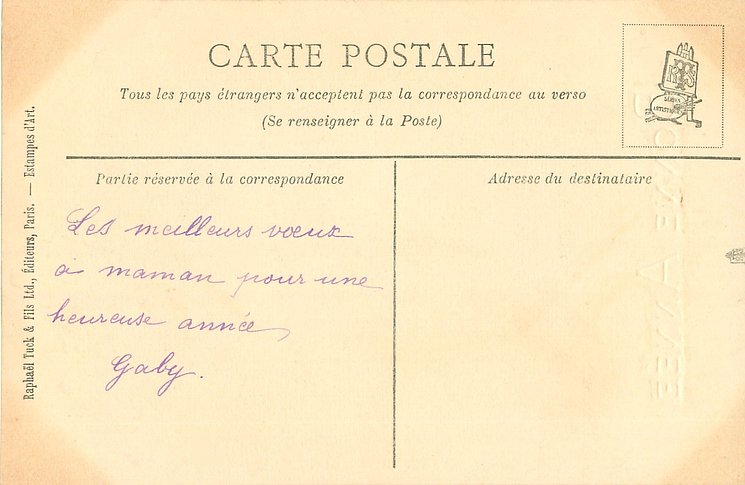 CARTE POSTALE
Tous les pays étrangers n'acceptent pas la correspondance au verso
(Se renseigner à la Poste)
Partie réservée à la correspondance
Adresse du destinataire
Les meilleurs vœux
à maman pour une
heureuse année,
Gaby.
Raphaël Tuck & Fils Ltd., Éditeurs, Paris. — Estampes d'Art.